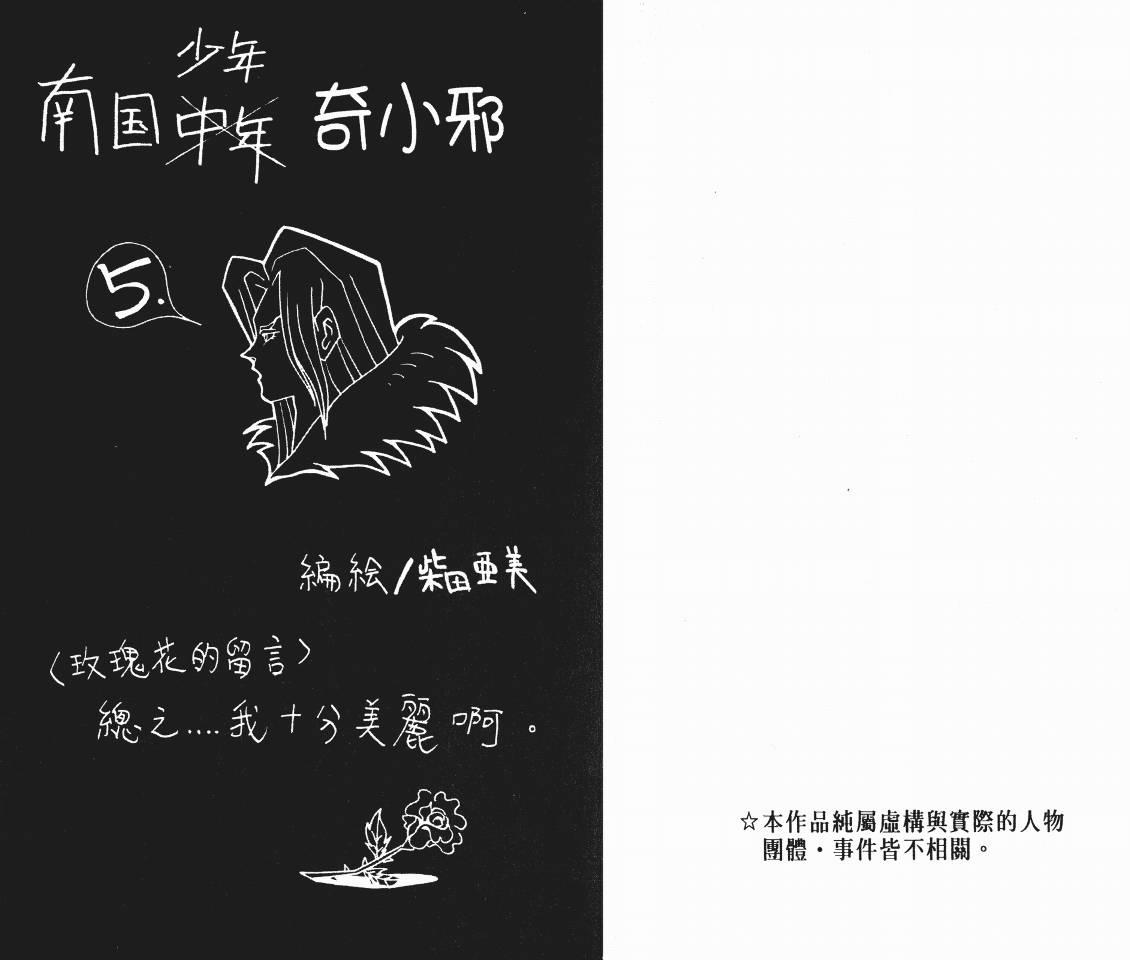 少年
南国中年 奇小邪
5.
編絵/柴田亜美
〈玫瑰花的留言〉
總之....我十分美麗啊。
☆本作品純屬虛構與實際的人物
團體・事件皆不相關。